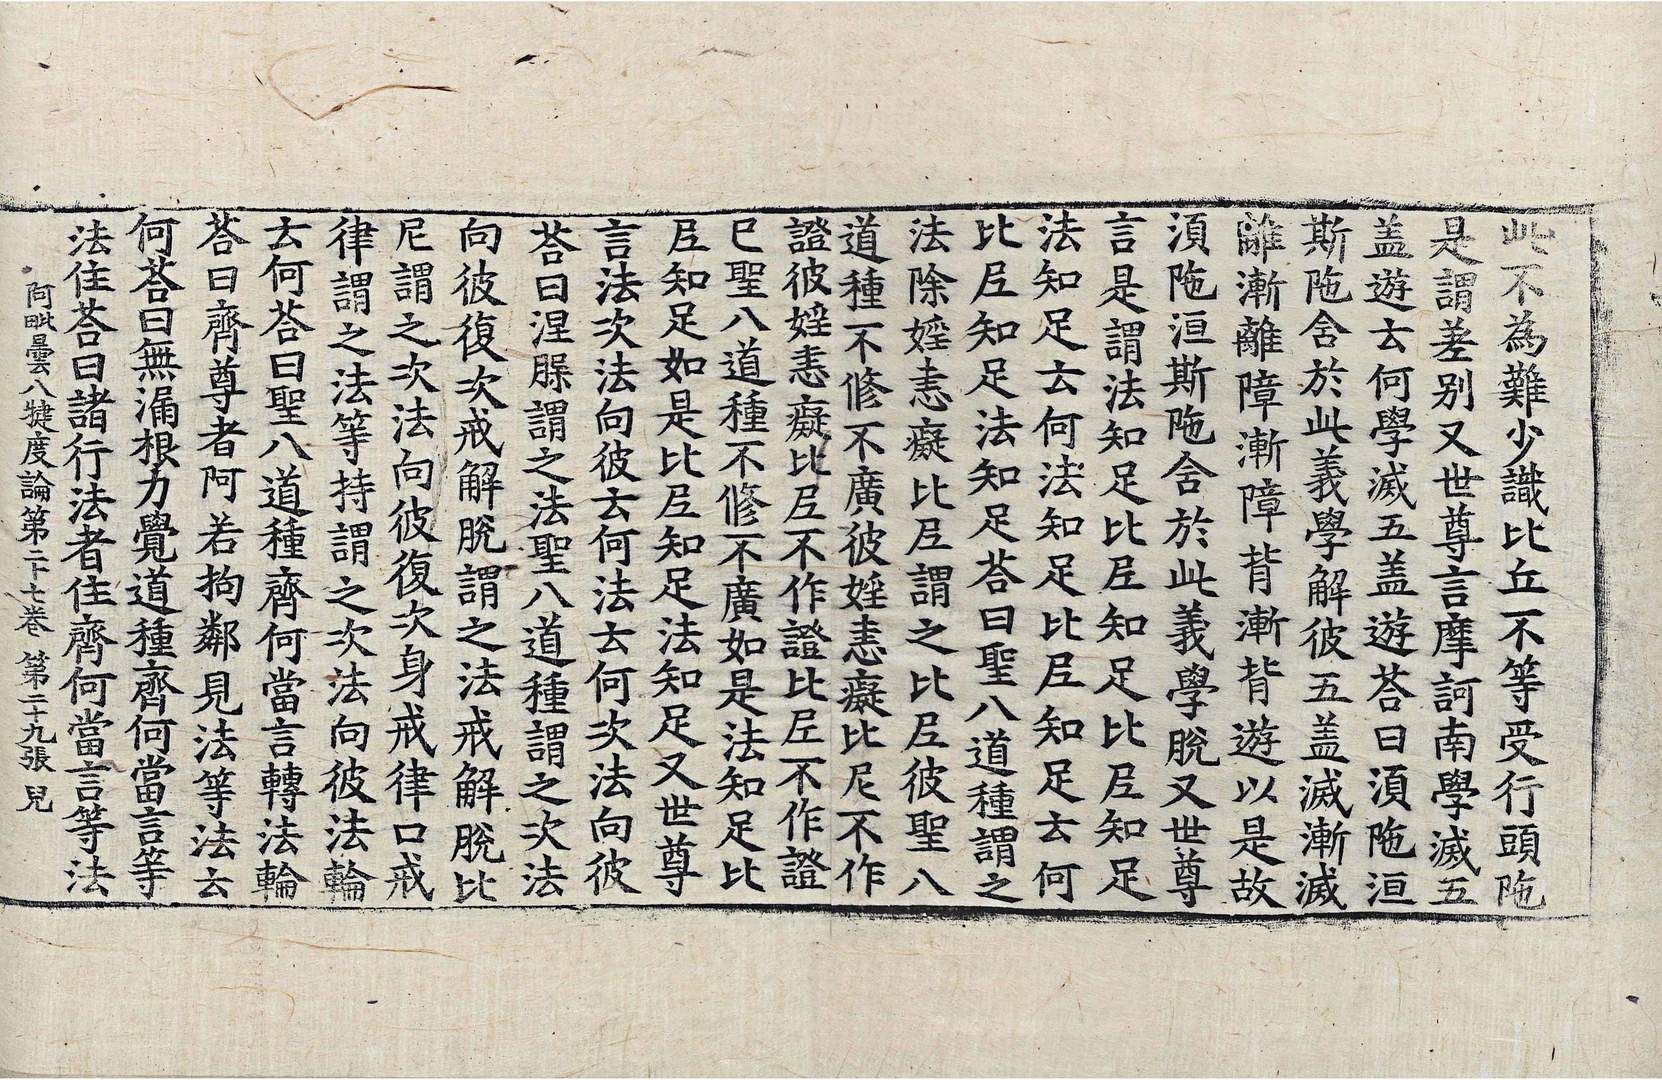 此不為難少識比丘不等受行頭陁
是謂差別又世尊言摩訶南學滅五
盖遊去何學滅五盖遊荅曰湏陁洹
斯陁舍於此義學解彼五盖滅漸滅
離漸離障漸障背漸背遊以是故
湏陁洹斯陁舍於此義學脫又世尊
言是謂法知足比𡰱知足比𡰱知足
法知足去何法知足比𡰱知足去何
比𡰱知足法知足荅曰聖八道種謂之
法除婬恚癡比𡰱謂之比𡰱彼聖八
道種不修不廣彼婬恚癡比尼不作
證彼婬恚癡比𡰱不作證比𡰱不作證
已聖八道種不修不廣如是法知足比
𡰱知足如是比𡰱知足法知足又世尊
言法次法向彼去何法去何次法向彼
荅曰涅㬷謂之法聖八道種謂之次法
向彼復次戒解脫謂之法戒解脫比
尼謂之次法向彼復次身戒律口戒
律謂之法等持謂之次法向彼法輪
去何荅曰聖八道種齊何當言轉法輪
荅曰齊尊者阿若拘鄰見法等法去
何荅曰無漏根力覺道種齊何當言等
法住荅曰諸行法者住齊何當言等法
阿毗曇八犍度論第二十七卷 第二十九張 兒